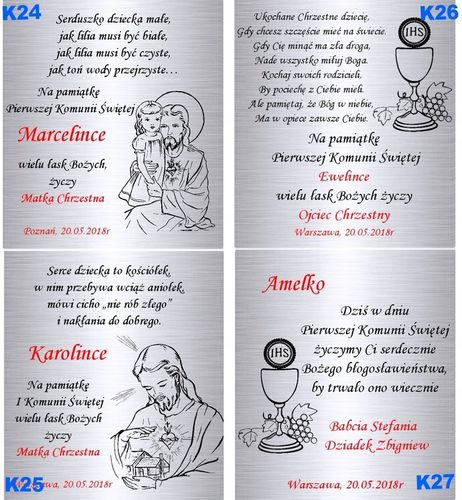 K24
Serduszko dziecka małe,
jak lilia musi być białe,
jak lilia musi być czyste,
jak toń wody przejrzyste...
Na pamiątkę
Pierwszej Komunii Świętej
Marcelince
wielu łask Bożych,
życzy
Matka Chrzestna
Poznań, 20.05.2018r
K26
Ukochane Chrzestne dziecię,
Gdy chcesz szczęście mieć na świecie.
Gdy Cię minąć ma zła droga,
Nade wszystko miłuj Boga.
Kochaj swoich rodzicieli,
By pociechę z Ciebie mieli.
Ale pamiętaj, że Bóg w niebie,
Ma w opiece zawsze Ciebie.
IHS
Na pamiątkę
Pierwszej Komunii Świętej
Ewelince
wielu łask Bożych życzy
Ojciec Chrzestny
Warszawa, 20.05.2018r
Serce dziecka to kościółek,
w nim przebywa wciąż aniołek,
mówi cicho „nie rób złego”
i nakłania do dobrego.
Karolince
Na pamiątkę
I Komunii Świętej
wielu łask Bożych
życzy
Matka Chrzestna
Warszawa, 20.05.2018r
K25
Amelko
Dziś w dniu
Pierwszej Komunii Świętej
życzymy Ci serdecznie
Bożego błogosławieństwa,
by trwało ono wiecznie
IHS
Babcia Stefania
Dziadek Zbigniew
Warszawa, 20.05.2018r
K27